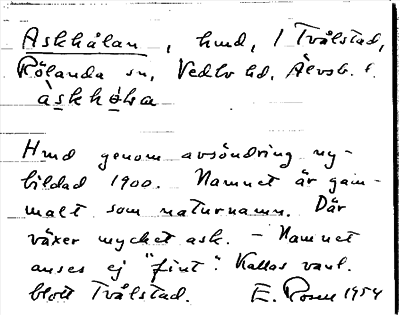 Askhålan, hmd, 1 Tvålstad,
Rölanda sn, Vedbo hd, Älvsb. l.
àskhøba
Hmd genom avsöndring ny-
bildad 1900. Namnet är gam-
malt som naturnamn. Där
växer mycket ask. – Namnet
anses ej "fint". Kallas vanl.
blott Tvålstad. E. Rosen 1954